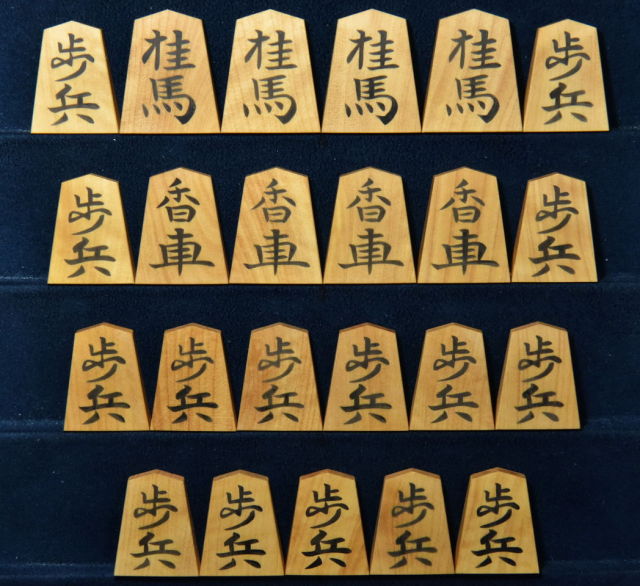 歩兵 桂馬 桂馬 桂馬 桂馬 歩兵
歩兵 香車 香車 香車 香車 歩兵
歩兵 歩兵 歩兵 歩兵 歩兵 歩兵
歩兵 歩兵 歩兵 歩兵 歩兵